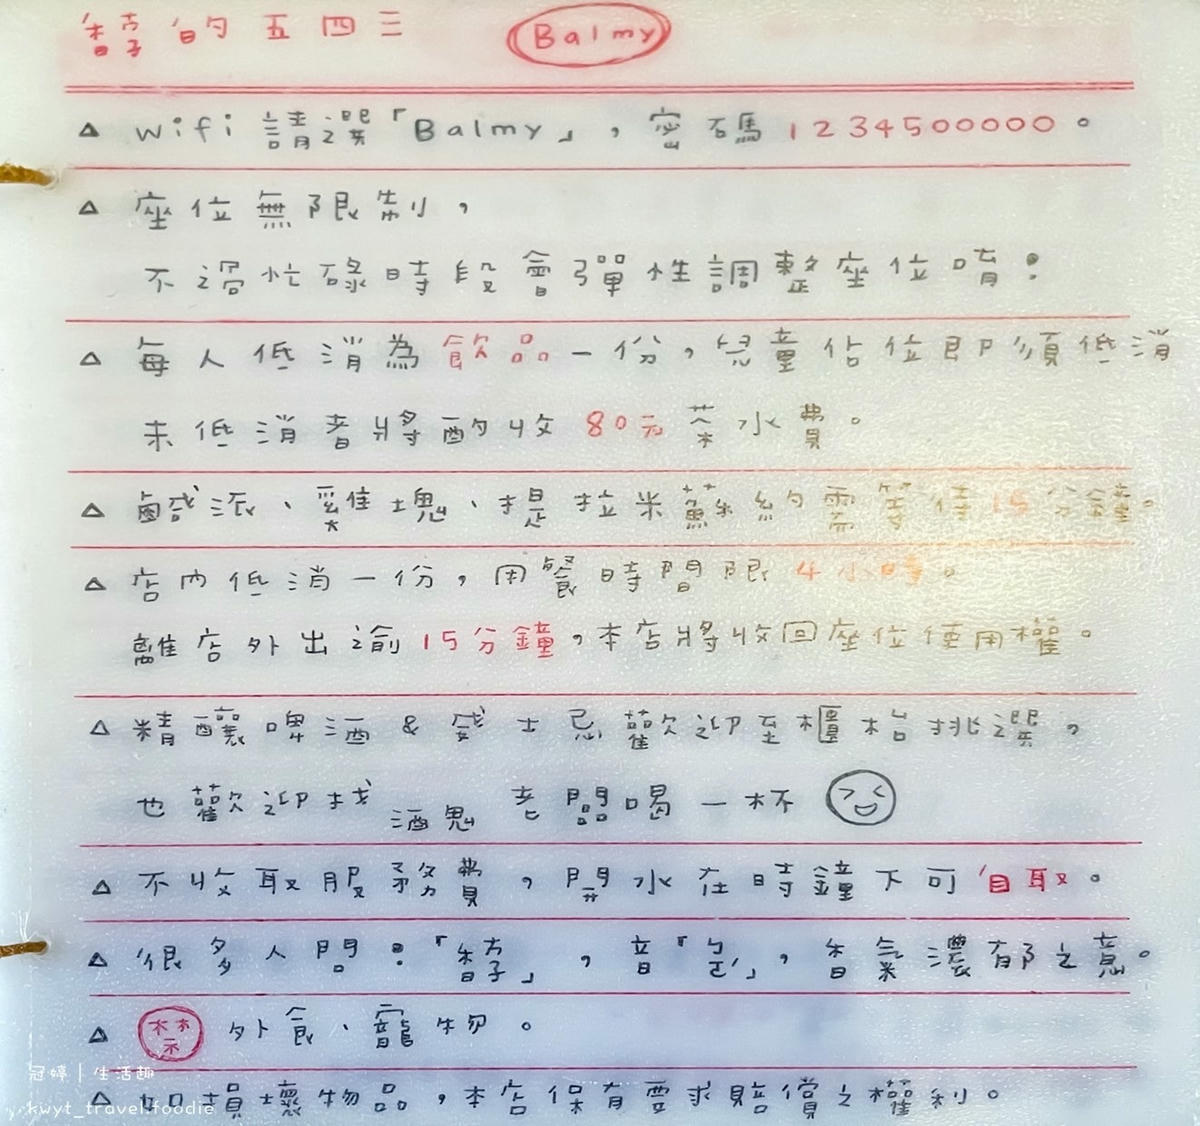 馞的五四三 Balmy
△ wifi 請選「Balmy」，密碼1234500000。
△ 座位無限制，
不過忙碌時段會彈性調整座位唷！
△ 每人低消為飲品一份，兒童佔位即須低消
未低消者將酌收80元茶水費。
△ 鹹派、雞塊、提拉米蘇約需等待15分鐘。
△ 店內低消一份，用餐時間限4小時。
離店外出逾15分鐘，本店將收回座位使用權。
△ 精釀啤酒 & 威士忌歡迎至櫃枱挑選，
也歡迎找酒鬼老闆喝一杯
△ 不收取服務費，開水在時鐘下可自取。
△ 很多人問：「馞」，音「ㄅㄛˊ」，香氣濃郁之意。
△ 禁 外食、寵物。
△ 如損壞物品，本店保有要求賠償之權利。
冠婷｜生活趣
kwyt_travel.foodie